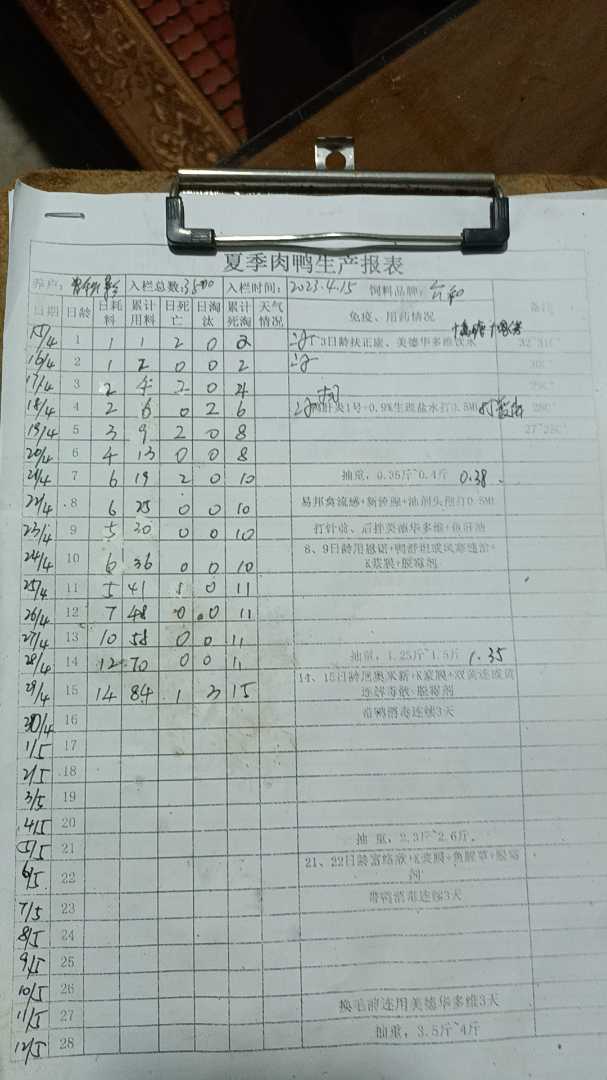 夏季肉鸭生产报表
养户: 入栏总数:3500 入栏时间:2023.4.15 饲料品牌: 六和
日期 日龄 日耗料 累计用料 日死亡 日淘汰 累计死淘 天气情况 免疫、用药情况 备注
15/4 1 1 1 2 0 2 1~3日龄扶正康、美德华多维饮水 32~31C°
16/4 2 1 2 0 0 2 30C°
17/4 3 2 4 2 0 4 29C°
18/4 4 2 6 0 2 6 肝炎1号+0.9%生理盐水打0.5Ml 28C°
19/4 5 3 9 2 0 8 27~26C°
20/4 6 4 13 0 0 8
21/4 7 6 19 2 0 10 抽重，0.35斤~0.4斤 0.38
22/4 8 6 25 0 0 10 易邦禽流感+新 +油剂 打0.5Ml
23/4 9 5 30 0 0 10 打针前、后拌美德华多维+鱼肝油
24/4 10 6 36 0 0 10 8、9日龄用 +鸭舒坦或
K浆膜+脱霉剂
25/4 11 5 41 1 0 11
26/4 12 7 48 0 0 11
27/4 13 10 58 0 0 11
28/4 14 12 70 0 0 11 抽重，1.25斤~1.5斤 1.35
29/4 15 14 84 1 3 15 14、15日龄用奥米新+K浆膜+双黄连或黄
连解毒散+脱霉剂
30/4 16 带鸭消毒连续3天
1/5 17
2/5 18
3/5 19
4/5 20
5/5 21 抽重，2.3斤~2.6斤.
6/5 22 21、22日龄富络欣+K浆膜+鱼腥草+脱霉
剂
7/5 23 带鸭消毒连续3天
8/5 24
9/5 25
10/5 26
11/5 27 换毛前连用美德华多维3天
12/5 28 抽重，3.5斤~4斤